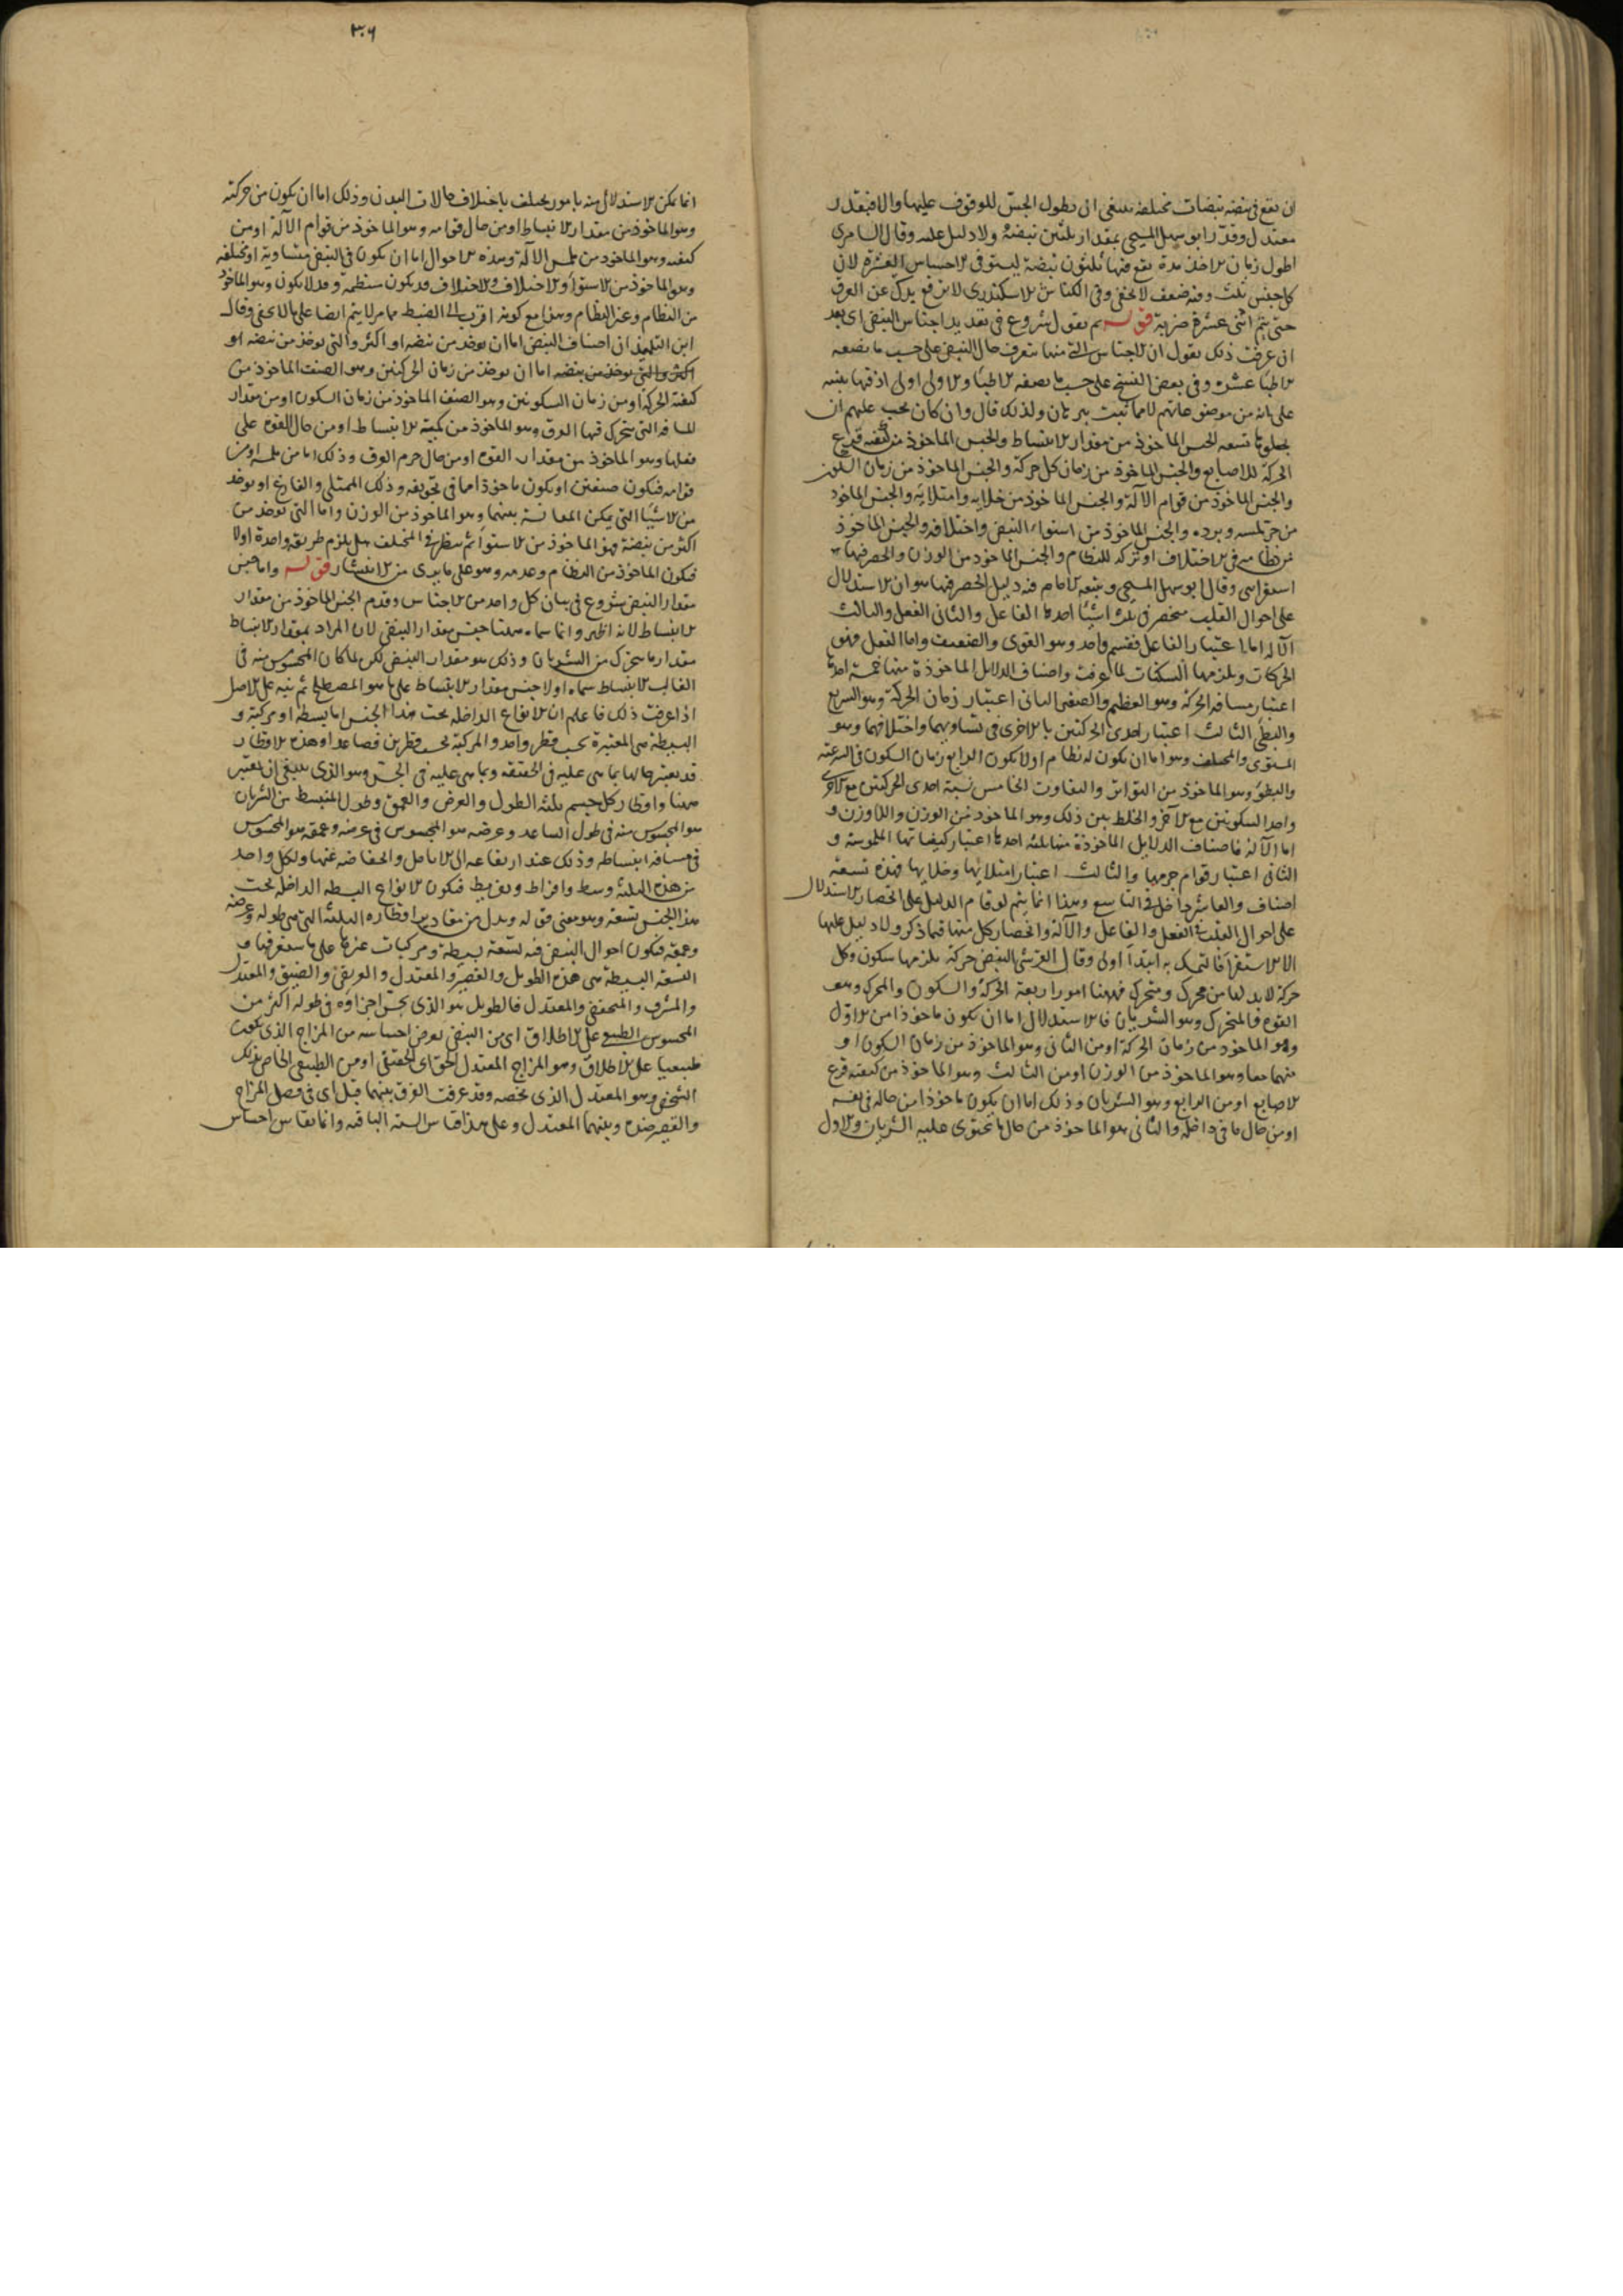 ان يقع في نبضة نبضات مختلفة فينبغي ان يطول الجس للوقوف عليها والا فبقدر
معتدل وقدر ابو سهل المسيحي بمقدار ثلثين نبضة ولا دليل عليه وقال السامري
اطول زمان الاخذ مدة يقع فيها ثلثون نبضة ليستوفى الاحساس العشرة لان
كل جنس ثلث وفيه ضعف لا يخفى وفي الكناش الاسكندري لا ترفع يدك عن العرق
حتى يتم اثنتى عشرة ضربة قوله ثم نقول شروع في تعديد اجناس النبض اى بعد
ان عرفت ذلك نقول ان الاجناس التي منها نتعرف حال النبض على حسب ما يصفه
الاطباء عشرة وفي بعض النسخ على حسب ما يصفه الاطباء والاولى اولى اذ فيها تنبيه
على انه من موضوعاتهم لا مما ثبت ببرهان ولذلك قال وان كان يجب عليهم ان
يجعلوها تسعة الجنس الماخوذ من مقدار الانبساط والجنس الماخوذ من كيفية قرع
الحركة للاصابع والجنس الماخوذ من زمان كل حركة والجنس الماخوذ من زمان السكون
والجنس الماخوذ من قوام الآلة والجنس الماخوذ من خلايه وامتلايه والجنس الماخوذ
من حر ملمسه وبرده والجنس الماخوذ من استواء النبض واختلافه والجنس الماخوذ
من نظامه في الاختلاف او تركه للنظام والجنس الماخوذ من الوزن والحصر فيها
استقرائى وقال ابو سهل المسيحي وتبعه الامام فيه دليل الحصر فيها هو ان الاستدلال
على احوال القلب منحصر في ثلث اشياء احدها الفاعل والثانى الفعل والثالث
الآلة اما اعتبار الفاعل فقسم واحد وهو القوى والضعيف واما الفعل فهو
الحركات ويلزمها السكنات لما عرفت واصناف الدلايل الماخوذة منها خمسة احدها
اعتبار مسافة الحركة وهو العظيم والصغير الثانى اعتبار زمان الحركة وهو السريع
والبطئ الثالث اعتبار احدى الحركتين بالاخرى في تساويهما واختلافهما وهو
المستوى والمختلف وهو اما ان يكون له نظام اولا يكون الرابع زمان السكون في السرعة
والبطؤ وهو الماخوذ من التواتر والتفاوت الخامس نسبة احدى الحركتين مع الاخرى
واحد السكونين مع الآخر والخلط بين ذلك وهو الماخوذ من الوزن واللاوزن و
اما الآلة فاصناف الدلايل الماخوذة منها ثلثة احدها اعتبار كيفياتها الملموسة و
الثانى اعتبار قوام جرمها والثالث اعتبار امتلايها وخلايها فهذه تسعة
اصناف والعاشر داخل في التاسع وهذا انما يتم لو قام الدليل على انحصار الاستدلال
على احوال القلب في الفعل والفاعل والآلة وانحصار كل منها فيما ذكر ولا دليل عليها
الا الاستقراء فالتمسك به ابتداء اولى وقال القرشى النبض حركة يلزمها سكون وكل
حركة لابد لها من محرك ومتحرك فههنا امور اربعة الحركة والسكون والمحرك وهو
القوة والمتحرك وهو الشريان فالاستدلال اما ان يكون ماخوذا من الاول
وهو الماخوذ من زمان الحركة او من الثانى وهو الماخوذ من زمان السكون او
منهما معا وهو الماخوذ من الوزن او من الثالث وهو الماخوذ من كيفية قرع
الاصابع او من الرابع وهو الشريان وذلك اما ان يكون ماخوذا من حاله في نفسه
او من حال ما في داخله والثانى هو الماخوذ من حال ما يحتوى عليه الشريان والاول
٣٠٦
انما يمكن الاستدلال منه بامور يختلف باختلاف حالات البدن وذلك اما ان يكون من حركته
وهو الماخوذ من مقدار الانبساط او من حال قوامه وهو الماخوذ من قوام الآلة او من
كيفه وهو الماخوذ من ملمس الآلة وهذه الاحوال اما ان يكون في النبض متساوية او مختلفة
وهو الماخوذ من الاستواء والاختلاف والاختلاف قد يكون منتظمة وقد لا يكون وهو الماخوذ
من النظام وغير النظام وهذا مع كونه اقرب الى الضبط مما مر لا يتم ايضا على ما لا يخفى وقال
ابن التلميذ ان اصناف النبض اما ان يوخذ من نبضة او اكثر والتي يوخذ من نبضة او
اكثر والتي يوخذ من نبضه اما ان يوخذ من زمان الحركتين وهو الصنف الماخوذ من
كيفية الحركة او من زمان السكونين وهو الصنف الماخوذ من زمان السكون او من مقدار
المسافة التي يتحرك فيها العرق وهو الماخوذ من كمية الانبساط او من حال القوة على
فعلها وهو الماخوذ من مقدار القوة او من حال جرم العرق وذلك اما من ملمسه او من
قوامه فيكون صنفين او يكون ماخوذا مما في تجويفه وذلك الممتلى والفارغ او يوخذ
من الاشياء التي يمكن المقايسة بينهما وهو الماخوذ من الوزن واما التي توخذ من
اكثر من نبضة فهو الماخوذ من الاستواء ثم ينظر في المختلف هل يلزم طريقة واحدة اولا
فيكون الماخوذ من النظام وعدمه وهو على ما يبدى من الانتشار قوله واما جنس
مقدار النبض شروع في بيان كل واحد من الاجناس وقدم الجنس الماخوذ من مقدار
الانبساط لانه اظهر وانما سماه ههنا جنس مقدار النبض لان المراد بمقدار الانبساط
مقدار ما يتحرك من الشريان وذلك هو مقدار النبض لكن لما كان المحسوس منه في
الغالب الانبساط سماه اولا جنس مقدار الانبساط على ما هو المصطلح ثم نبه على الاصل
اذا عرفت ذلك فاعلم ان الانواع الداخلة تحت هذا الجنس اما بسيطة او مركبة و
البسيطة هى المعتبرة بحسب قطر واحد والمركبة بحسب قطرين فصاعدا وهذه الاقطار
قد يعتبر حالها بما هى عليه في الحقيقة وبما هى عليه في الجس وهو الذى ينبغى ان يعتبر
ههنا واقطار كل جسم ثلثة الطول والعرض والعمق وطول المنبسط من الشريان
هو المحسوس منه في طول الساعد وعرضه هو المحسوس في عرضه وعمقه هو المحسوس
في مسافة انبساطه وذلك عند ارتفاعه الى الانامل وانخفاضه عنها ولكل واحد
من هذه الثلثة وسط وافراط وتفريط فيكون الانواع البسيطة الداخلة تحت
هذا الجنس تسعة وهو معنى قوله ويدل من مقادير اقطاره الثلثة التي هى طوله وعرضه
وعمقه فيكون احوال النبض فيه تسعة بسيطة ومركبات غيرها على ما ستعرفها و
التسعة البسيطة هى هذه الطويل والقصير والمعتدل والعريض والضيق والمعتدل
والمشرف والمنخفض والمعتدل فالطويل هو الذى يحس اجزاؤه في طوله اكثر من
المحسوس الطبيعى على الاطلاق اى من النبض يعرض احساسه من المزاج الذى يكون
طبيعيا على الاطلاق وهو المزاج المعتدل الحق اى الحقيقى او من الطبيعى الخاص بذلك
الشخص وهو المعتدل الذى يخصه وقد عرفت الفرق بينهما قبل اى في فصل المزاج
والقصير ضده وبينهما المعتدل وعلى هذا قياس الستة الباقية وانما يقاس احساس